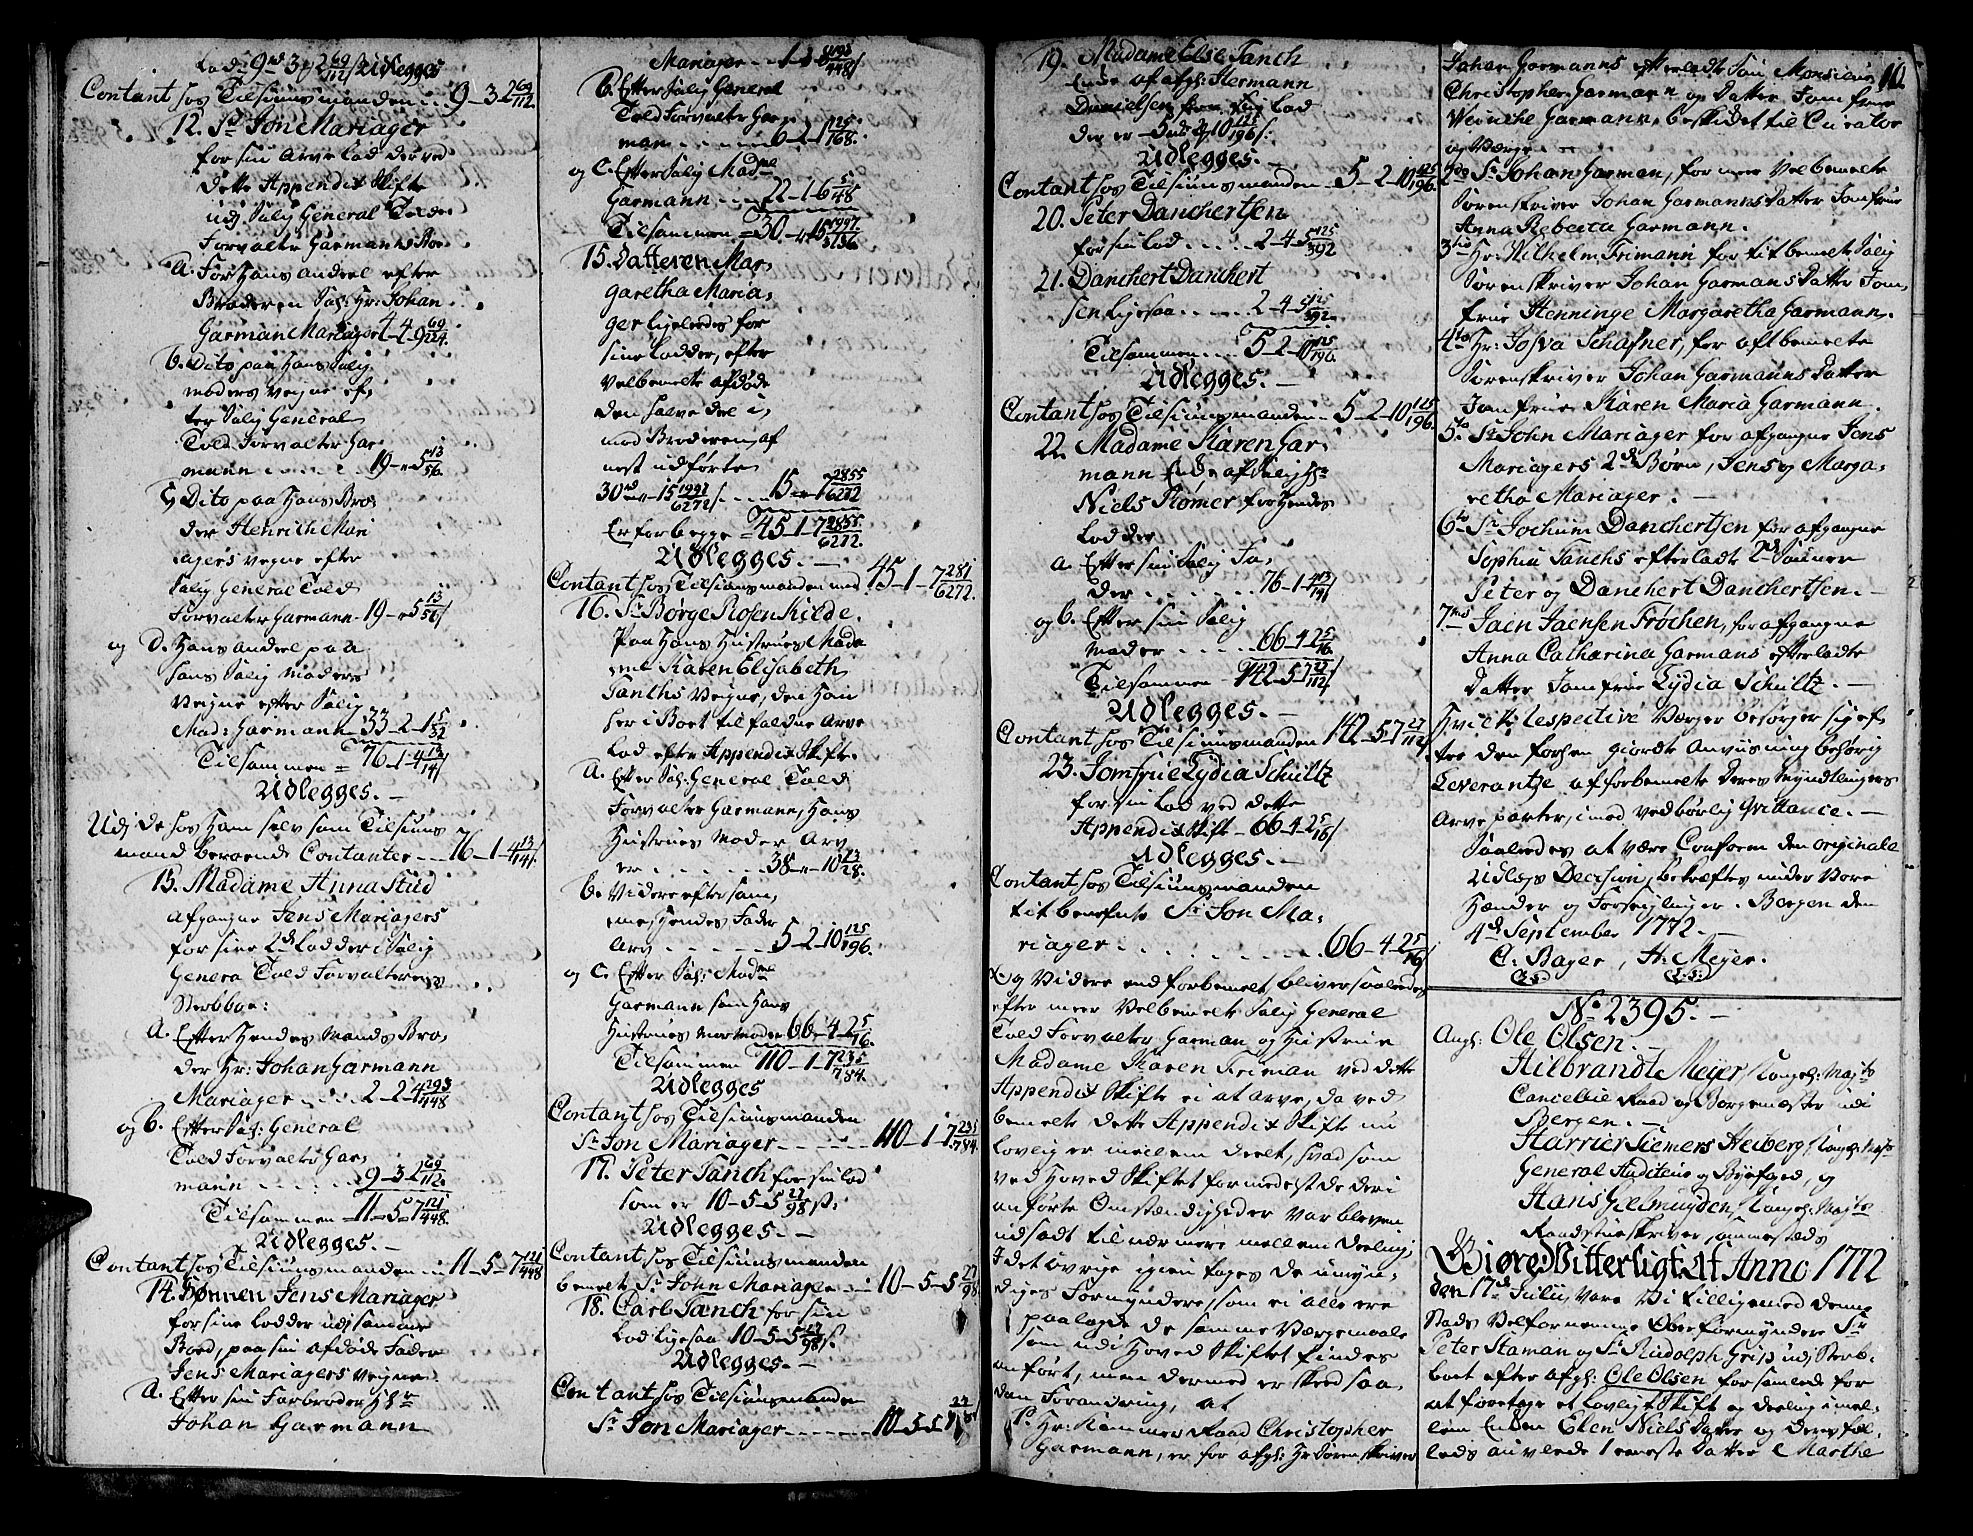 Lod 9 rd 3 ß 2 69/112 / Udlegges
Contant hos Tilsiunsmanden 9-3-2 69/112
12. Sr Jon Mariager
for sin Arve Lod derved
dette Appendix Skifte
udj Salig General Told
Forvalter Garmans Boe
A. For Hans andeel efter
Broderen Sal: Hr: Johan
Garman Mariager 4-4-9 69/224.
b. Dito paa Hans Salig
moders veigne ef,
ter Salig General
Told Forvalter Gar
mann 19-"-5 13/56.
C, Dito paa Hans Bro,
der Henrich Mari
agers veigne efter
Salig General Told
Forvalter Garmann 19-"-5 13/56/
og D. Hans andeel paa
hans Salig moders
Veigne efter Salig
Mad: Garmann 33-2-1 5/32
Tilsammen = 76-1-4 13/14/
Udlegges.-
Udj de hos Ham selv som Tilsiuns
mand beroende Contanter 76-1-4 13/14/.
13. Madame Anna Stud
afgangne Jens Mariagers
for sine 2de Lodder i Salig
General Told Forvalterens
Sterboe:
A. Efter Hendes Mands Bro,
der Hr: Johan Garmann
Mariager 2-2-4 293/448
og b. Efter Sal: General
Told Forvalter Gar,
mann 9-3-2 69/112.
Tilsammen = 11-5-7 121/448.
Udlegges.-
Contant hos Tilsiunsmanden 11-5-7 121/448
14. Sønnen Jens Mariager
for sine Lodder udj samme
Boed, paa sin afdøde Fader
Jens Mariagers veigne
A. Efter sin Farbroder Hr
Johan Garmann
Mariager 1-1-8 /448/
b. Efter Salig General
Told Forvalter Gar,
man 6-2-1 25/168.
og C. Efter Salig Madme
Garmann 22-1-6 5/48
Tilsammen = 30-"-15 1997/3136
15. Datteren Mar,
garetha Maria,
ger ligeledes for
sine Lodder, efter
velbemelte afdøde
den halve deel i,
mod Broderen, af
nest udførte
30 rd "-15 1997/6272/ 15-"-7 2855/6272
Er for begge = 45-1-7 2855/6272.
Udlegges.-
Contant hos Tilsiunsmanden med 45-1-7 281/6272.
16. Sr Børge Rosenkilde.
Paa Hans Hustrues Mada
me Karen Elisabeth
Tanchs Veigne, den Ham
her i Boet tilfaldne Arve
Lod efter Appendix Skifte.
A. Efter Sal: General Told
Forvalter Garmann, Hans
Hustrues Moder Arv
er 38-"-10 23/28.
b. Videre efter sam,
me, Hendes Fader
Arv 5-2-10 125/196.
og C. Efter Sal: Madme
Garmann som Hans
Hustrues Mormoder 66-4-2 5/16.
Tilsammen 110-1-7 235/784.
Udlegges
Contant hos Tilsiunsmanden
Sr Jon Mariager 110-1-7 235/784.
17. Peter Tanch for sin Lod
som er 10-5-5 27/98 ß:
Udlegges.-
Contant hos Tilsiunsmanden
bemelt Sr John Mariager 10-5-5 27/98
18. Carl Tanch for sin
Lod ligesaa 10-5-5 27/98 ß.
Udlegges.-
Contant hos Tilsiunsmanden
Sr Jon Mariager 10-5-5
19. Madame Else Tanch
Enke af afgl: Hermann
Danielsen for sin Lod
der er 5 rd 2 ß 10 125/196 ß:
Udlegges.-
Contant hos Tilsiunsmanden 5-2-10 125/196.
20. Peter Danchertsen
for sin Lod 2-4-5 125/392
21. Danchert Danchert
sen ligesaa 2-4-5 125/392
Tilsammen 5-2-10 125/196.
Udlegges.-
Contant hos Tilsiunsmanden 5-2-10 125/196.
22. Madame Karen Gar,
mann Enke af Salig Hr
Niels Rømer for Hendes
Lodder
a. Efter sin Salig Fa,
der 76-1-4 13/14/
og b. Efter sin Salig
Moder 66-4-2 5/16.
Tilsammen 142-5-7 27/112/
Udlegges.-
Contant hos Tilsiunsmanden 142-5-7 27/112/
23. Jomfrue Lydia Schultz
for sin Lod ved dette
Appendix Skift 66-4-2 5/16/
Udlegges.-
Contant hos Tilsiunsmanden
titbenefnte Sr Jon Ma,
riager 66-4-2 5/16/
Og Videre end forbemelt, bliver saaledes
efter meer Velbemelte Salig General
Told Forvalter Garman og Hustrue
Madame Karen Friman ved dette
Appendix Skifte ei at arve, da ved
bemelte dette Appendix Skifte nu
Lovlig er mellem deelt, hvad som
ved Hoved Skiftet formedelst de deri
anførte Omstændigheder var bleven
udsadt til nærmere mellem deeling,
I det øvrige igien tages de umyn,
diges Formyndere, som ei alle ere
paalagde de samme Værgemaale
som udi Hoved Skiftet findes
anført, men dermed er skeed saa,
dan Forandring, at
1o. Hr: Kammer Raad Christopher
Garmann, er for afgl: Hr Sorenskriver
10.
Johan Garmanns efterladte Søn Monsieur
Christopher Garmann og Datter Jomfrue
Wenche Garmann, beskicket til Curator
og Værge.-
2do Sr Johan Garman, for meer Velbemelte
Sorenskriver Johan Garmanns Datter Jomfrue
Anna Rebecca Garmann.
3tio Hr: Wilhelm Frimann for titbemelt Salig
Sorenskriver Johan Garmans Datter Jom,
frue Henninge Margaretha Garmann.
4to Hr: Josva Schafner, for oftbemelte
Sorenskriver Johan Garmanns Datter
Jomfrue Karen Maria Garmann.
5to Sr John Mariager for afgangne Jens
Mariagers 2de Børn, Jens og Marga,
retha Mariager.-
6to Sr Jochum Danchertsen for afgangne
Sophia Tanchs efterladt 2de Sønner
Peter og Danchert Danchertsen.-
7mo Jaen Jaensen Frøchen, for afgangne
Anna Catharina Garmans efterladte
Datter Jomfrue Lydia Schultz.-
Hvilke respective Værger besørger sig ef,
ter den forhen giordte Anviisning behørig
Leverantze af forbemelte deres Myndtlingers
Arve parter, imod vedbørlig Qvittance.-
Saaledes at være Conform den originale
Udlegs Decision, bekræftes under Vore
Hænder og Forseiglinger. Bergen den
4de September 1772.-
C: Bager, H: Meyer.
(L.S.) (L:S:)
No 2395.-
Angl: Ole Olsen.-
Hilbrandt Meyer, Kongel: Mayts
Cancellie Raad og Borgemæster udi
Bergen.-
Harrier Siemers Heiberg, Kongel: Mayts
General Auditeur og Byefoged, og
Hans Geelmuyden, Kongel: Mayts
Raadstueskriver, ammesteds
Giøre Vitterligt At Anno 1772
den 17de Julii, vare Vi tilligemed denne
Stads Velfornemme Oberformyndere Sr
Peter Staman og Sr Rudolph Grip udj Sterb,
boet efter afgl: Ole Olsen forsamlede for
at foretage et Lovligt Skifte og deeling imel,
lem Enken Elen Niels Datter og deres fæl,
leds avlede 1 eneste Datter Marthe